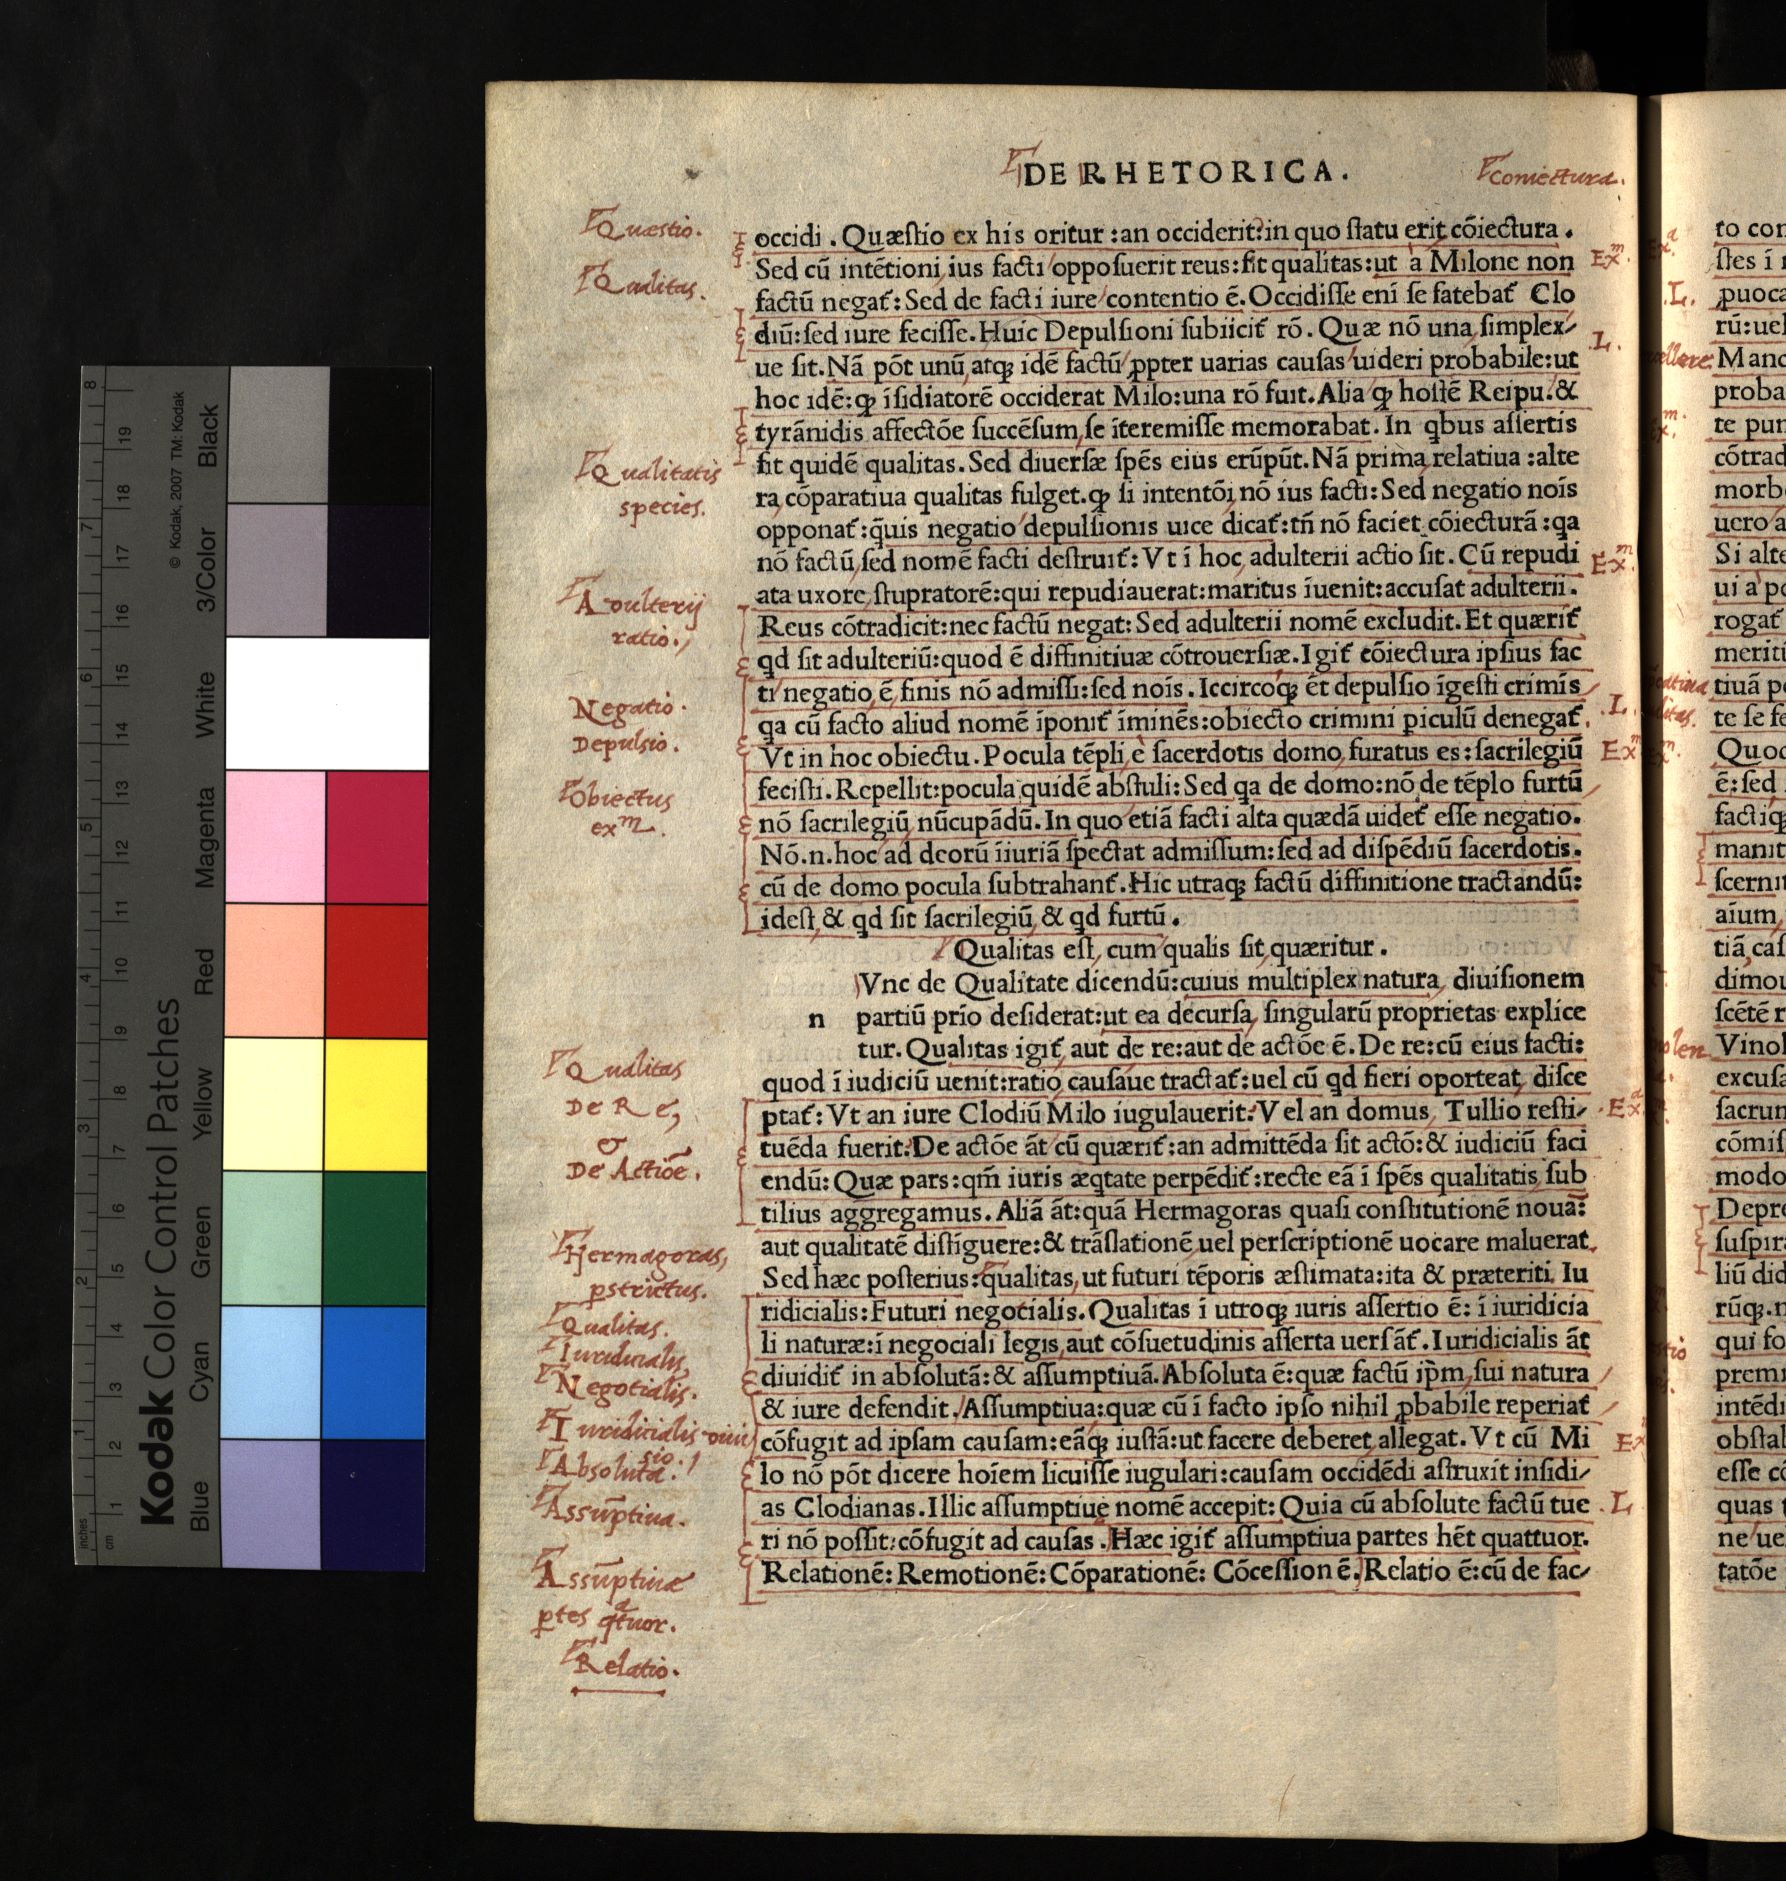 DE RHETORICA.
Coniectura.
Quæstio.
Qualitas.
Qualitatis
species.
Adulterij
ratio.
Negatio.
Depulsio.
Obiectus
exm.
Qualitas
De Re,
&
De Actiõe.
Hermagoras,
pstrictus.
Qualitas.
Iuridicialis,
Negotialis.
Iuridicialis diui
sio.
Absoluta.
Assũptiua.
Assũptiuæ
ptes qtuor.
Relatio.
occidi . Quæſtio ex his oritur :an occiderit?in quo ſtatu erit cõiectura .
Sed cũ intẽtioni ius facti oppoſuerit reus:fit qualitas:ut a Milone non Exm.
factũ negat᷑: Sed de facti iure contentio ẽ.Occidiſſe eni ſe fatebat᷑ Clo
diũ:ſed iure feciſſe.Huic Depulſioni ſubiicit᷑ rõ. Quæ nõ una ſimplex⸗ L.
ue ſit.Nã põt unũ,atqꝫ idẽ factũ ꝓpter uarias cauſas uideri probabile:ut
hoc idẽ:ꝙ ĩſidiatorẽ occiderat Milo:una rõ fuit.Alia ꝙ hoſtẽ Reipu.&
tyrãnidis affectõe ſuccẽſum,ſe ĩteremiſſe memorabat. In qbus aſſertis
fit quidẽ qualitas. Sed diuerſæ ſpẽs eius erũpũt.Nã prima relatiua :alte
ra cõparatiua qualitas fulget.ꝙ ſi intentõi nõ ius facti: Sed negatio noĩs
opponat᷑:q̃uis negatio depulſionis uice dicat᷑:tñ nõ faciet cõiecturã :qa
nõ factũ,ſed nomẽ facti deſtruit᷑: Vt ĩ hoc adulterii actio ſit. Cũ repudi Exm.
ata uxore ſtupratorẽ:qui repudiauerat:maritus ĩuenit:accuſat adulterii.
Reus cõtradicit:nec factũ negat: Sed adulterii nomẽ excludit. Et quærit᷑
qd ſit adulteriũ:quod ẽ diffinitiuæ cõtrouerſiæ.Igit᷑ cõiectura ipſius fac
ti negatio ẽ, finis nõ admiſſi:ſed noĩs. Iccircoqꝫ ẽt depulſio ĩgeſti crimĩs
qa cũ facto aliud nomẽ ĩponit᷑ ĩminẽs:obiecto crimini piculũ denegat᷑. L.
Vt in hoc obiectu. Pocula tẽpli e ſacerdotis domo furatus es: ſacrilegiũ Exm
feciſti. Repellit:pocula quidẽ abſtuli: Sed qa de domo:nõ de tẽplo furtũ
nõ ſacrilegiũ nũcupãdũ. In quo etiã facti alta quædã uidet᷑ eſſe negatio.
Nõ.n.hoc ad deorũ ĩiuriã ſpectat admiſſum: ſed ad diſpẽdiũ ſacerdotis.
cũ de domo pocula ſubtrahant᷑. Hic utraqꝫ factũ diffinitione tractandũ:
ideſt,& qd ſit ſacrilegiũ, & qd furtũ .
Qualitas eſt, cum qualis ſit quæritur .
Vnc de Qualitate dicendũ:cuius multiplex natura diuiſionem
n partiũ prĩo deſiderat:ut ea decurſa, ſingularũ proprietas explice
tur. Qualitas igit᷑ aut de re:aut de actõe ẽ. De re:cũ eius facti:
quod ĩ iudiciũ uenit:ratio cauſaue tractat᷑: uel cũ qd fieri oporteat, diſce
ptat᷑: Vt an iure Clodiũ Milo iugulauerit: Vel an domus Tullio reſti⸗ Exa
tuẽda fuerit: De actõe ãt cũ quærit᷑:an admittẽda ſit actõ:& iudiciũ faci
endũ: Quæ pars:qm̃ iuris æqtate perpẽdit᷑:recte eã ĩ ſpẽs qualitatis ſub
tilius aggregamus. Aliã ãt:quã Hermagoras quaſi conſtitutionẽ nouã:
aut qualitatẽ diſtĩguere:& trãſlationẽ uel perſcriptionẽ uocare maluerat.
Sed hæc poſterius:qualitas,ut futuri tẽporis æſtimata:ita & præteriti Iu
ridicialis: Futuri negocialis. Qualitas ĩ utroqꝫ iuris aſſertio ẽ: ĩ iuridicia
li naturæ:ĩ negociali legis,aut cõſuetudinis aſſerta uerſãt᷑. Iuridicialis ãt
diuidit᷑ in abſolutã:& aſſumptiuã. Abſoluta ẽ:quæ factũ ip̃m ſui natura
& iure defendit. Aſſumptiua:quæ cũ ĩ facto ipſo nihil ꝓbabile reperiat᷑
cõfugit ad ipſam cauſam:eãqꝫ iuſtã:ut facere deberet allegat. Vt cũ Mi Ex
lo nõ põt dicere hoĩem licuiſſe iugulari:cauſam occidẽdi aſtruxit inſidi⸗
as Clodianas. Illic aſſumptiue nomẽ accepit: Quia cũ abſolute factũ tue L
ri nõ poſſit:cõfugit ad cauſas . Hæc igit᷑ aſſumptiua partes hẽt quattuor.
Relationẽ: Remotionẽ: Cõparationẽ: Cõceſſionẽ. Relatio ẽ:cũ de fac⸗
to con
ſtes ĩ
ꝓuoca
rũ:uel
Manc
proba
te pun
cõtrad
morb
uero a
Si alte
ui a po
rogat᷑
meriti
tiuã p
te ſe fe
Quod
ẽ:ſed
factiqꝫ
manit
ſcerni
aĩum,
tiã,caſ
dimou
ſcẽtẽ r
Vinol
excuſa
ſacrum
cõmiſ
modo
Depre
ſuſpira
liũ did
rũqꝫ.n
qui fo
premi
intẽdi
obſtal
eſſe cõ
quas t
ne ue
tatõe
Kodak Color Control Patches
© Kodak, 2007 TM: Kodak
Blue Cyan Green Yellow Red Magenta White 3/Color Black
inches 1 2 3 4 5 6 7 8
cm 1 2 3 4 5 6 7 8 9 10 11 12 13 14 15 16 17 18 19